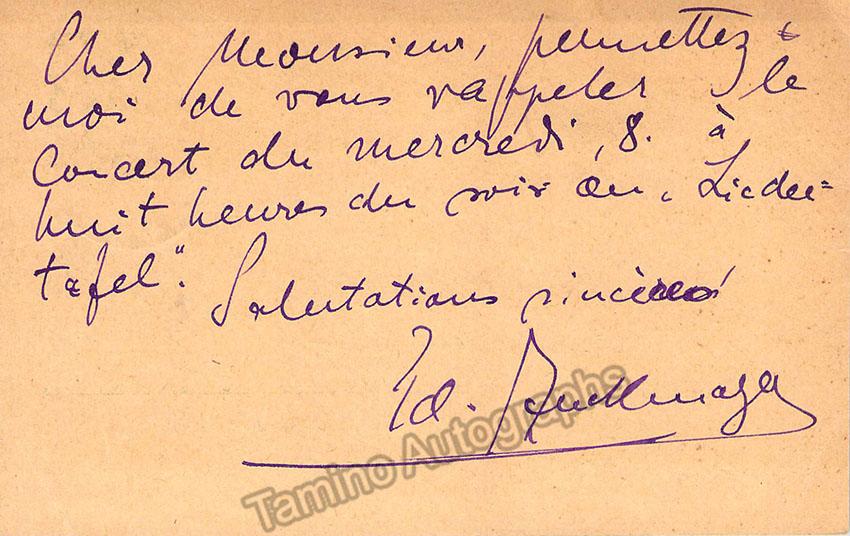 Cher Monsieur, permettez-
moi de vous rappeler le
Concert du mercredi, 8. à
huit heures du soir au „Lieder=
tafel".
Salutations sincères
Ed.
Tamino Autographs